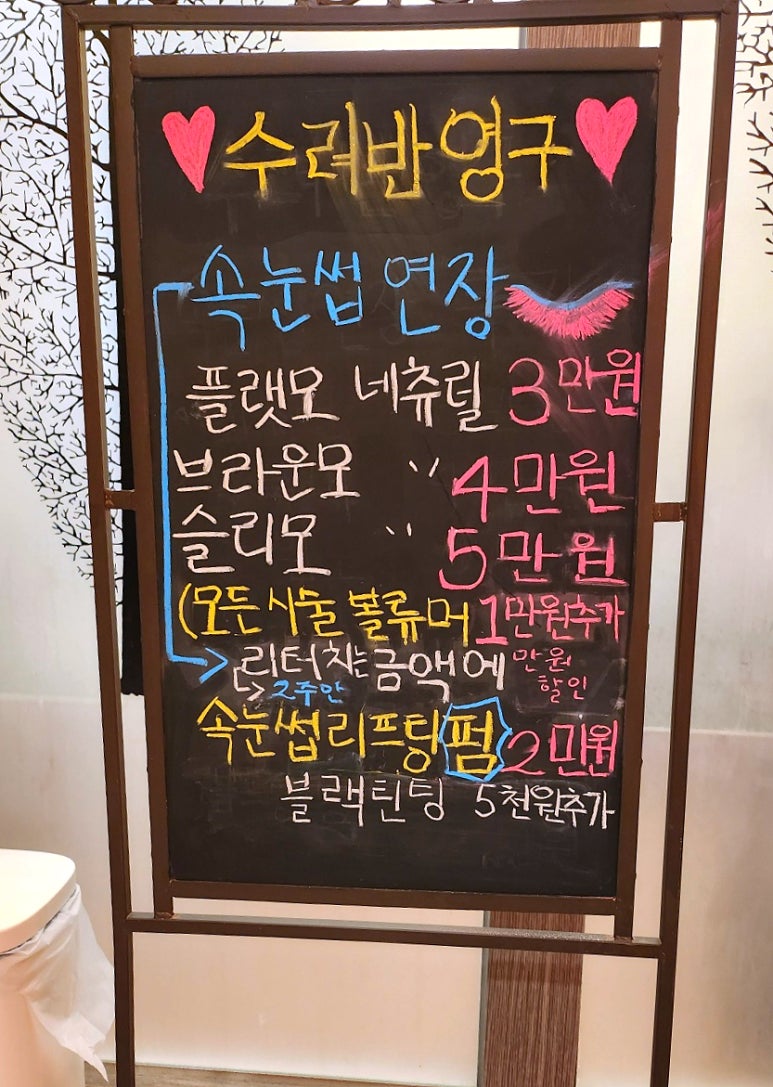 ♥수려반영구♥
속눈썹 연장
플랫모 네츄럴 3만원
브라운모 〃 4만원
슬리모 〃 5만원
(모든시술 볼류머 1만원추가
리터치는 금액에 만원 할인
2주안
속눈썹리프팅펌 2만원
블랙틴팅 5천원추가